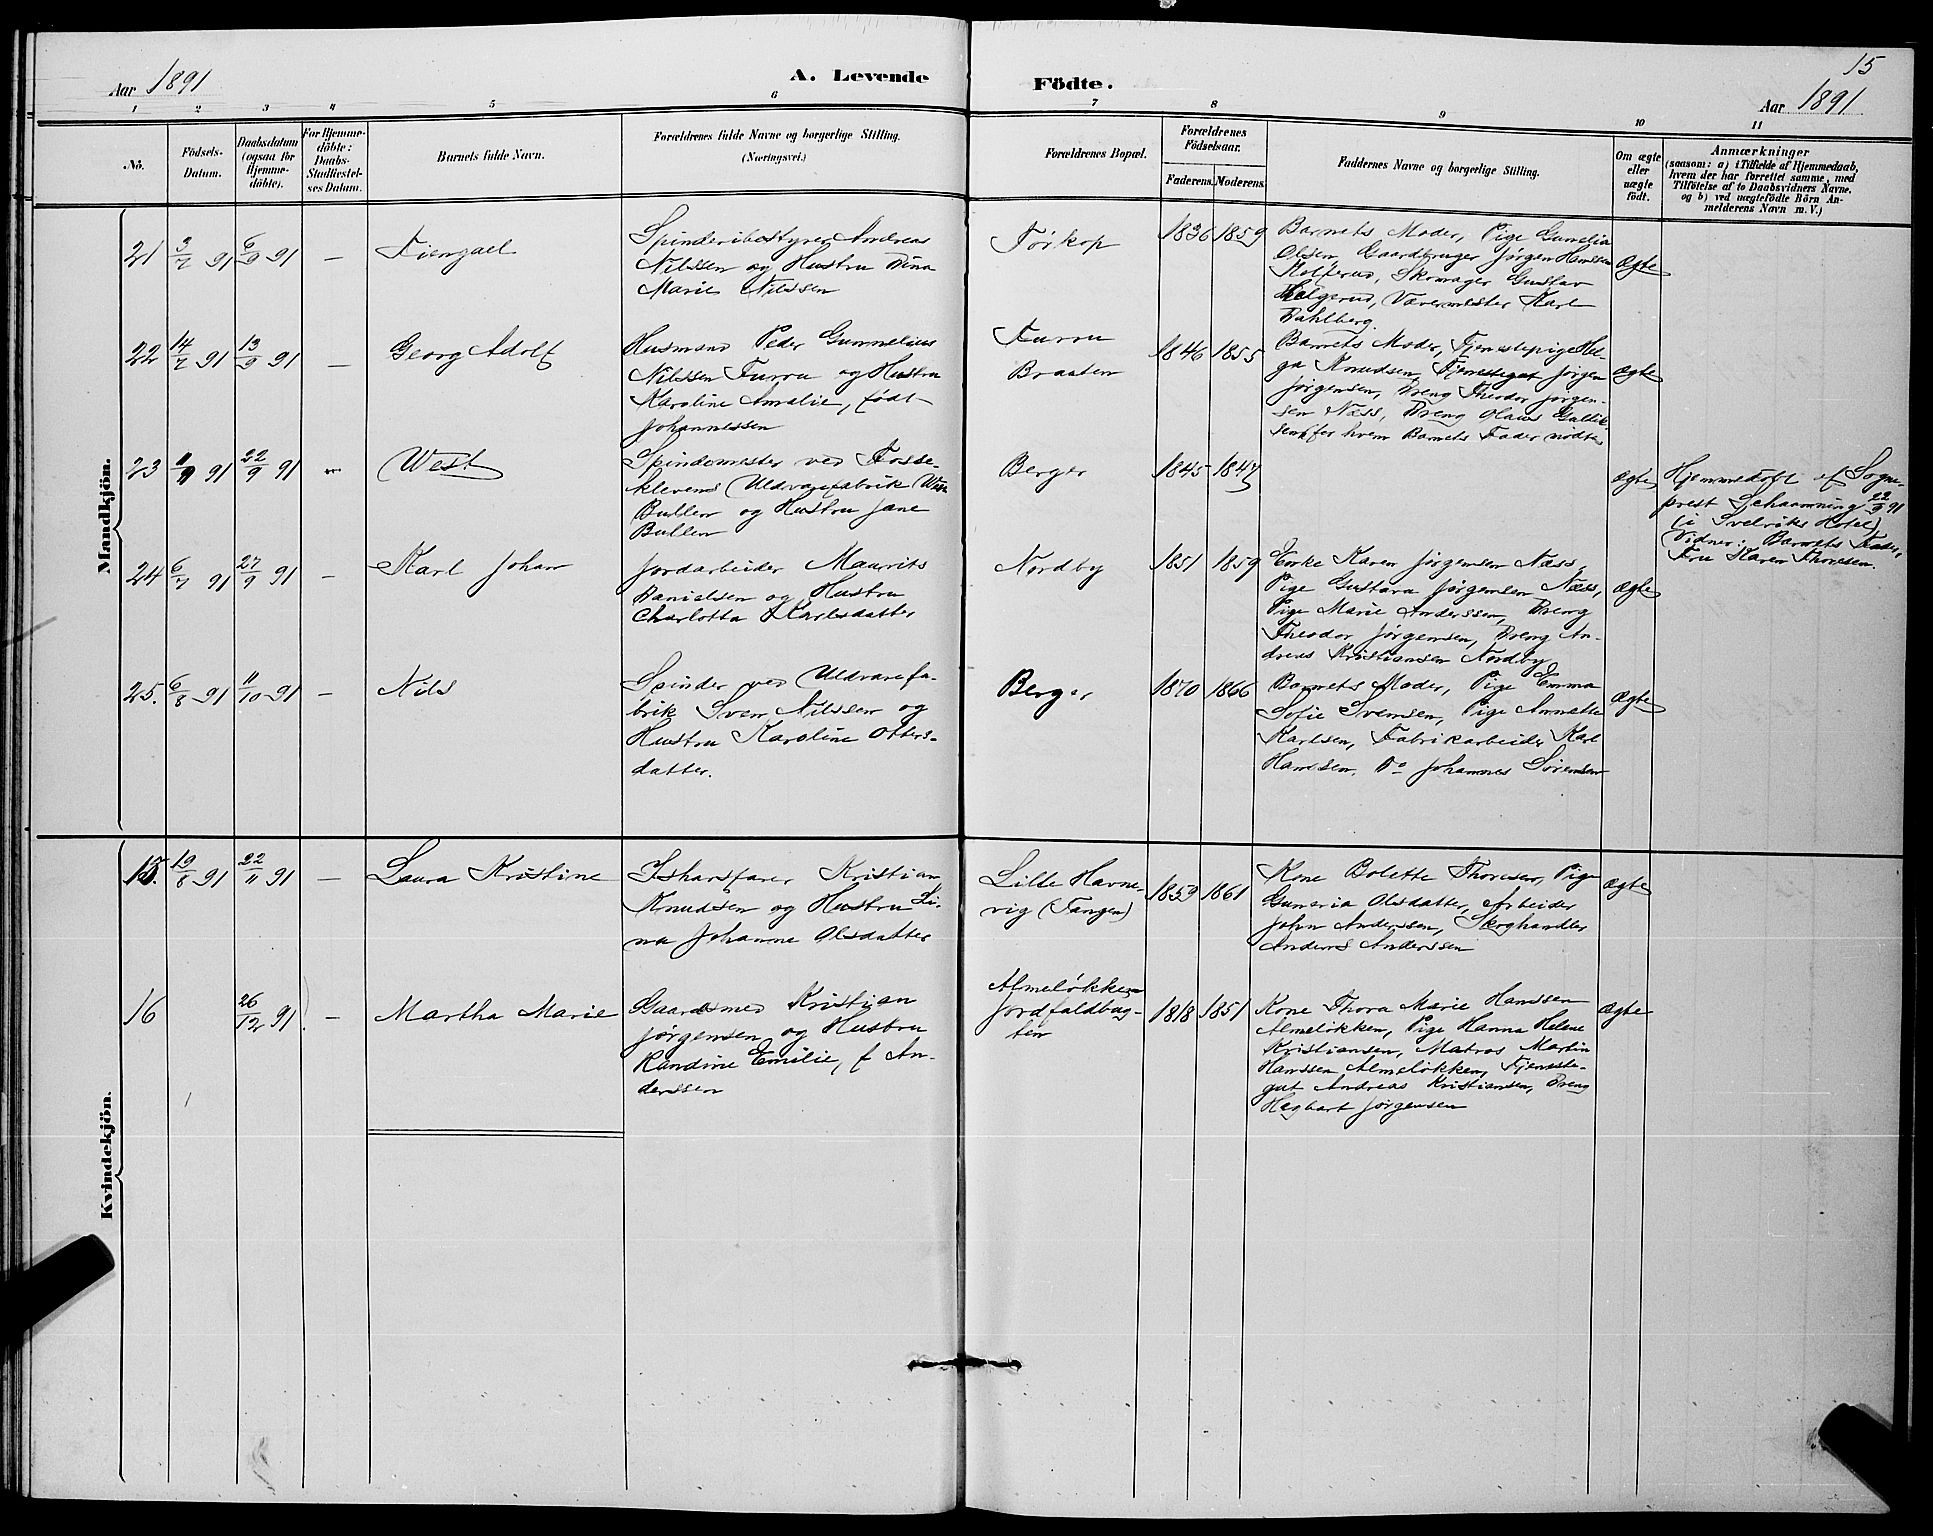 15
Aar 1891
A. Levende
Födte.
Aar 1891
1 2 3 4 5 6 7 8 9 10 11
No.
Födsels-
Datum.
Daabsdatum
(ogsaa for
Hjemme-
döbte).
For Hjemme-
döbte:
Daabs-
Stadfæstel-
ses Datum.
Barnets fulde Navn.
Forældrenes fulde Navne og borgerlige Stilling.
(Næringsvei.)
Forældrenes Bopæl.
Forældrenes
Födselsaar.
Faderens. Moderens.
Faddernes Navne og borgerlige Stilling.
Om ægte
eller
uægte
födt.
Anmærkninger
(saasom: a) i Tilfælde af Hjemmedaab,
hvem der har forrettet samme, med
Tilföielse af to Daabsvidners Navne,
og b) ved uægtefödte Börn An-
melderens Navn m. V.)
Mandkjön.
21 3/7 91 6/9 91 — Fiengael
Spinderibestyrer Andreas
Nilssen og Hustru Dina
Marie Nilssen
Törkop
1836 1859
Barnets Moder, Pige Gunelia
Olsen, Gaardbruger Jörgen Hanssen
Skomager Gustav
Helgerud, Vævermester Karl
Dahlberg.
ægte
22 14/7 91 13/9 91 — Georg Adolf
Husmand Peder Gunnelius
Nilssen Furru og Hustru
Karoline Amalie, født
Johannessen
Furru
Braaten
1846 1855
Barnets Moder, Tjenestepige Hel-
ga Knudsen, Tjenestegut Jörgen
Jörgensen, Dreng Theodor Jörgen-
sen Næss, Dreng Olaus Gullik-
sen, for hvem Barnets Fader mødte
ægte
23 1/9 91 22/9 91 — West
Spindemester ved Fosse-
klevens Uldvarefabrik West
Buller og Hustru Jane
Buller
Berger
1845 1847
ægte
Hjemmedöbt af Sogne-
prest Schaanning 22/9 91
(i Svelviks Hotel)
Vidner: Barnets Fader,
Fru Karen Thoresen.
24 6/7 91 27/9 91 — Karl Johan
Jordarbeider Maurits
Danielsen og Hustru
Charlotta Karlsdatter
Nordby
1851 1859
Enke Karen Jörgensen Næss,
Pige Gustava Jörgensen Næss,
Pige Marie Anderssen, Dreng
Theodor Jörgensen, Dreng An-
dreas Kristiansen Nordby
ægte
25. 6/8 91 11/10 91 — Nils
Spinder ved Uldvarefa-
brik Sven Nilssen og
Hustru Karoline Otters-
datter.
Berger
1870 1866
Barnets Moder, Pige Emma
Sofie Svensen, Pige Annette
Karlsen, Fabrikarbeider Karl
Hanssen, Do Johannes Sörensen
ægte
Kvindekjön.
15. 19/8 91 22/11 91 — Laura Kristine
Ishavsfarer Kristian
Knudsen og Hustru Li-
na Johanne Olsdatter
Lille Havne-
vig (Tangen)
1859 1861
Kone Bolette Thoresen, Pige
Gunaria Olsdatter, Arbeider
John Anderssen, Skoghandler
Anders Anderssen
ægte
16 26/12 91 — Martha Marie
Gaardsmed Kristian
Jörgensen og Hustru
Randine Emilie, f An-
derssen
Almeløkken
Jordfaldbug-
ten
1818 1851
Kone Thora Marie Hanssen
Almeløkken, Pige Hanna Helene
Kristiansen, Matros Martin
Hanssen Almeløkken, Tjeneste-
gut Andreas Kristiansen, Dreng
Hagbart Jørgensen
ægte